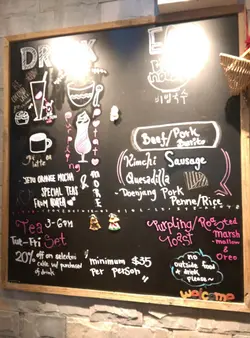 DRINK
EA
비빔국수
Latte
JEJU ORANGE MOCHA
SPECIAL TEAS
FROM KOREA
& MORE
Beef/Pork
Burrito
Kimchi Sausage
Quesadilla
Doenjang Pork
Penne/Rice
Tea 3-6pm
Tue-Fri Set
20% off on selected
cake w/ purchased
of drinks
minimum $35
per person
Roasted
Marsh
mallow
& Oreo
Toast
no
outside food
& drink
please~
welcome